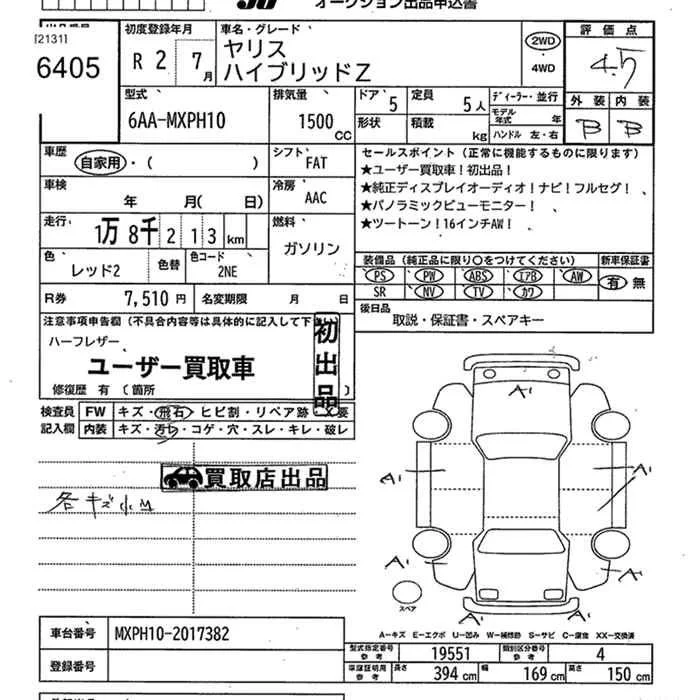 オークション出品申込書
出品番号
[2131]
6405
初度登録年月
R 2 7月
車名・グレード
ヤリス
ハイブリッドZ
2WD
・
4WD
評価点
4.5
外装 内装
B B
型式
6AA-MXPH10
排気量
1500 CC
ドア 5
定員 5人
形状
積載 kg
ディーラー・並行
モデル年式 年
ハンドル 左・右
車歴
自家用・( )
シフト FAT
セールスポイント (正常に機能するものに限ります)
★ユーザー買取車!初出品!
★純正ディスプレイオーディオ!ナビ!フルセグ!
★パノラミックビューモニター!
★ツートーン!16インチAW!
車検 年 月(日)
冷房 AAC
走行
1万8千213km
燃料
ガソリン
色 レッド2
色替
色コード 2NE
装備品 (純正品に限り○をつけてください)
新車保証書
PS PW ABS エアB AW
SR NV TV カワ
有 無
R券 7,510円
名変期限 月 日
後日品
取説・保証書・スペアキー
注意事項申告欄 (不具合内容等は具体的に記入して下さい)
ハーフレザー
ユーザー買取車
初出品
修復歴 有 (箇所 )
検査員記入欄
FW キズ・飛石・ヒビ割・リペア跡・X要
内装 キズ・汚れ・コゲ・穴・スレ・キレ・破レ
買取店出品
各キズ小凹
A1
A1
A1
A1
A1
A1
A1
スペア
A…キズ E…エクボ U…凹み W…補修跡 S…サビ C…腐食 XX…交換済
車台番号 MXPH10-2017382
登録番号
型式指定番号 参考 19551
類別区分番号 参考 4
車庫証明用 参考
長さ 394 cm
幅 169 cm
高さ 150 cm